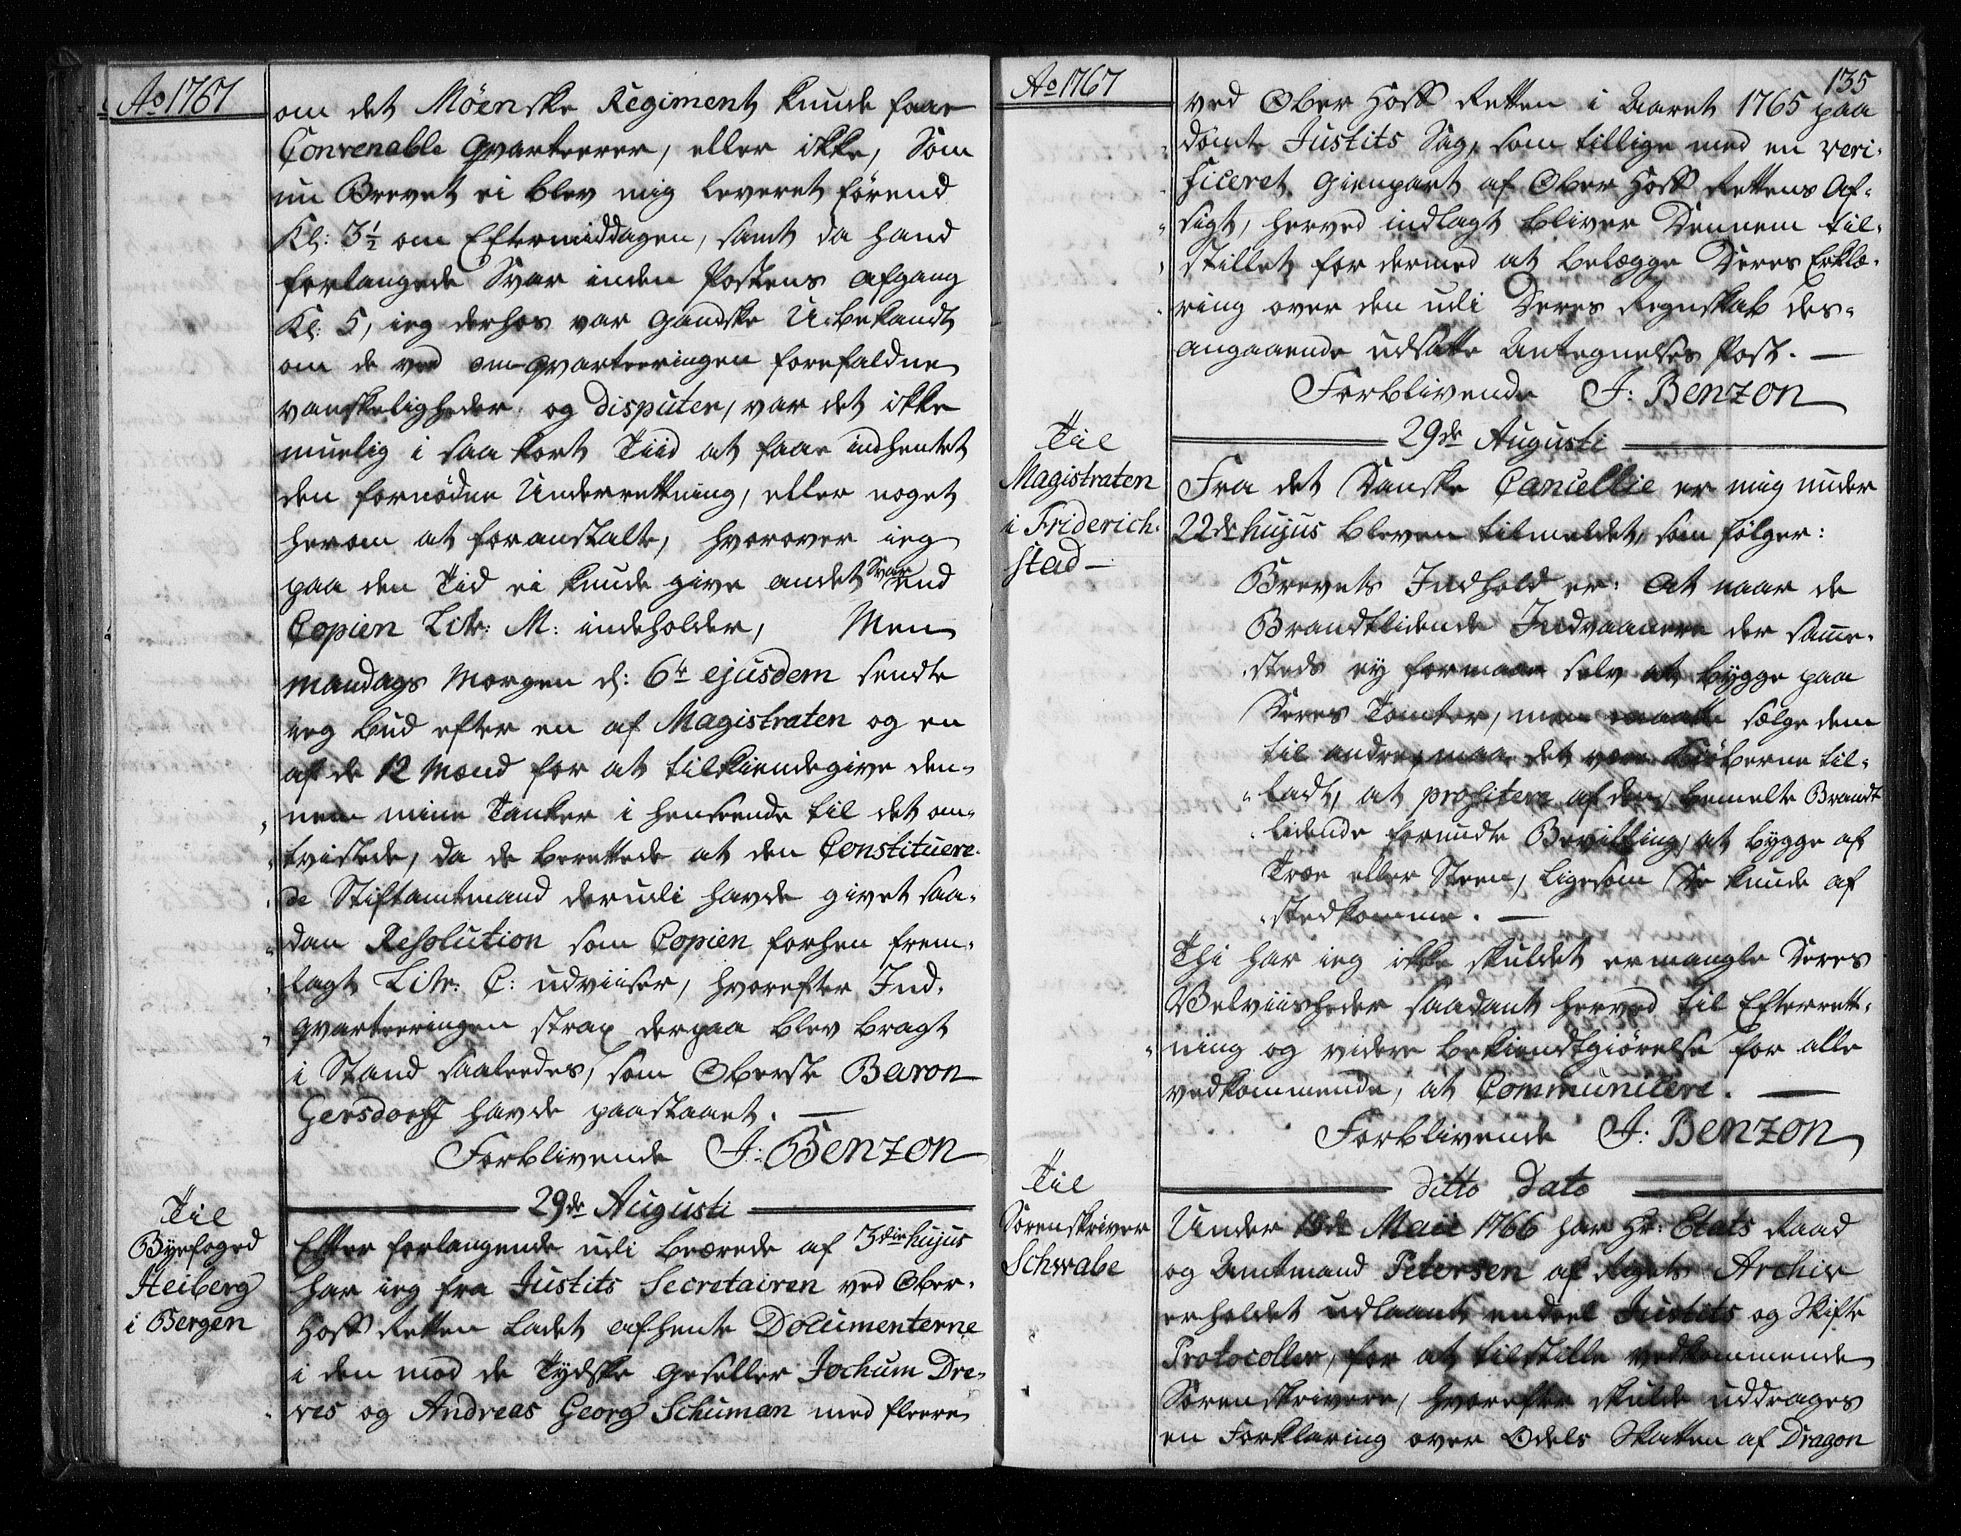 Ao 1767
om det Møenske Regiment kunde faae
Convenable Qvarteerer, eller ikke, Som
nu Brevet ei blev mig leveret førend
Kl: 3½ om Eftermiddagen, samt da hand
forlangede Svar inden Postens Afgang
Kl: 5, ieg derhos var gandske Ubekandt
om de ved omqvarteeringen forefaldne
vanskeligheder og disputer, var det ikke
muelig i saa kort Tiid at faae indhentet
den fornødne Underrettning, eller noget
herom at foranstalte, hvorover ieg
paa den Tid ei kunde give andet Svar end
Copien Litr: M: indeholder, Men
mandags Morgen d: 6te ejusdem sendte
ieg bud efter en af Magistraten og en
af de 12 Mænd for at tilkiendegive den-
nem mine Tanker i henseende til det om-
tvistede, da de berettede at den Constituere-
de Stiftamtmand deruli havde givet saa-
dan Resolution som Copien forhen frem-
lagt Litr: C: udviiser, hvorefter Ind-
qvarteeringen strax derpaa blev bragt
i Stand saaleedes, som Oberste Baron
Gersdorff havde paastaaet. —
Forblivende J: Benzon
29de Augusti
Til
Byefoged
Heiberg
i Bergen
Efter forlangende udi beærede af 3die hujus
har ieg fra Justits Secretairen ved Ober-
Hoff Retten ladet afhente Documenterne
i den mod de Tydske geseller Jochum Dre-
ves og Andreas Georg Schuman med fleere
Ao 1767
135
ved Ober Hoff Retten i Aaret 1765 paa
dømte Justits Sag, som tillige med en veri-
ficeret Gienpart af Ober Hoff Rettens Af-
sigt, herved indlagt bliver Dennem til-
stillet for dermed at belægge Deres Erklæ-
ring over den udi Deres Regnskab des-
angaaende udsatte Antegnelses Post. —
Forblivende J: Benzon
29de Augusti
Til
Magistraten
i Friderich-
stad —
Fra det Danske Cancellie er mig under
22de hujus bleven tilmeldet, som følger:
Brevets Indhold er: At naar de
Brandtlidende Indvaanere der samme-
steds ey formaae selv at bygge paa
Deres Tomter, men maatte sælge dem
til andre, maa det være Kiøberne til-
ladt, at profitere af den, bemelte Brandt
lidende forundte Bevilling, at bygge af
Træe eller Steen, ligesom De kunde af
stedkomme. —
Thi har ieg ikke skuldet ermangle Deres
Velviisheder saadant herved til Efterrett-
ning og videre bekiendtgiørelse for alle
vedkommende, at Communicere. —
Forblivende J: Benzon
ditto dato
Til
Sorenskriver
Schwabe
Under 19de Maii 1766 har Hr: Etats Raad
og Amtmand Petersen af Rigets Archiv
erholdet udlaant endeel Justits og Skifte
Protocoller, for at tilstille vedkommende
Sorenskrivere, hvorefter skulde uddrages
en Forklaring over Odels Skatten af Dragon